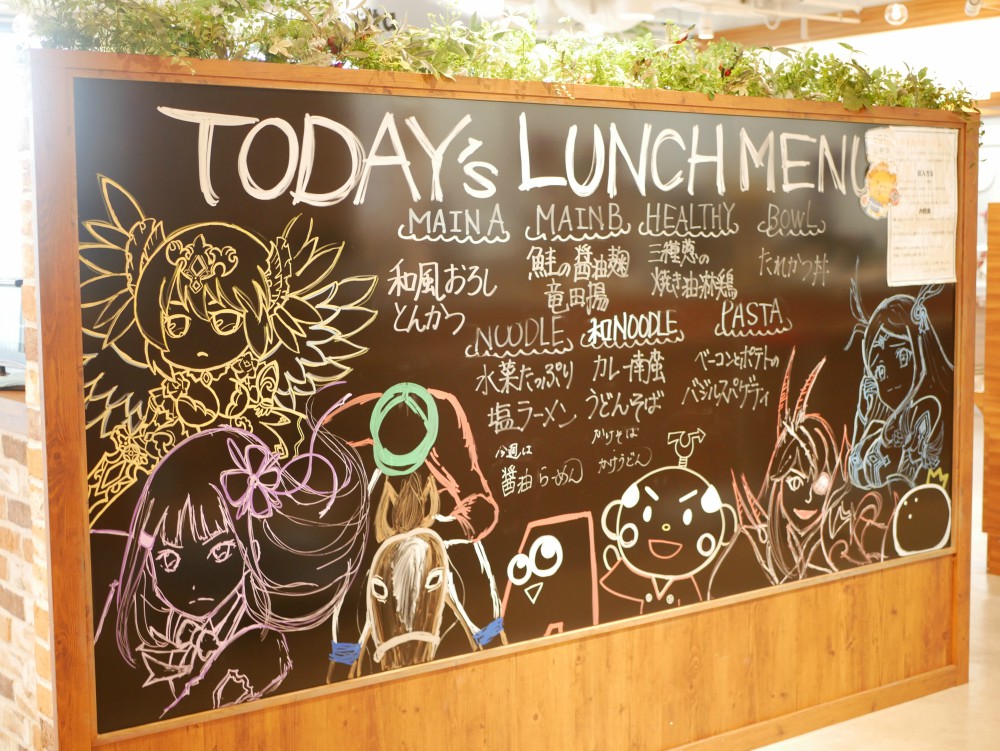 TODAY's LUNCH MENU
MAIN A
和風おろし
とんかつ
MAIN B
鮭の醤油麹
竜田揚
HEALTHY
三種葱の
焼き油淋鶏
BOWL
たれかつ丼
NOODLE
水菜たっぷり
塩ラーメン
今週は
醤油らーめん
和NOODLE
カレー南蛮
うどんそば
かけそば
かけうどん
PASTA
ベーコンとポテトの
バジルスパゲティ